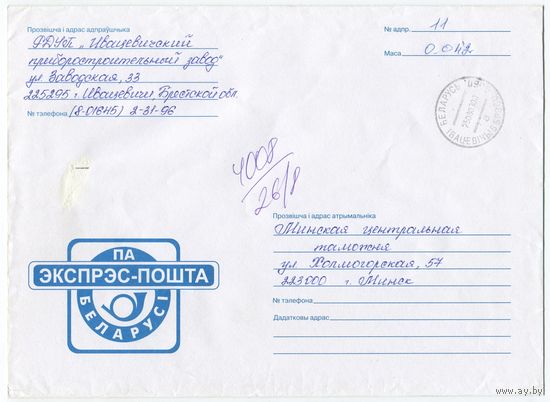 Прозвішча і адрас адпраўшчыка
РДУП „Ивацевичский
приборостроительный завод"
ул Заводская, 33
225295 г. Ивацевичи Брестской обл.
№ тэлефона (8-01645) 2-31-96
№ адпр. 11
Маса 0.042
БЕЛАРУСЬ
4008
26/8
Прозвішча і адрас атрымальніка
Минская центральная
таможня
ул Холмогорская, 57
223000 г. Минск
№ тэлефона
Дадатковы адрас
ПА
ЭКСПРЭС-ПОШТА
БЕЛАРУСІ
www.ay.by